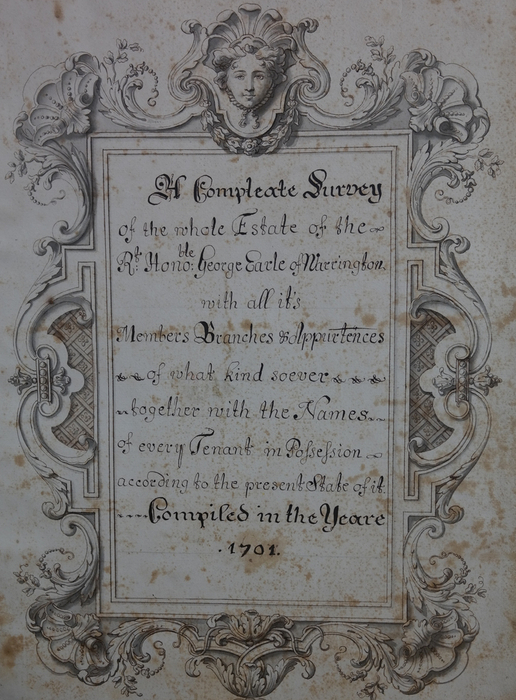 A Compleate Survey
of the whole Estate of the
Rt: Honoble: George Earle of Warrington
with all it's
Members Branches & Appurtences
of what kind soever
together with the Names
of every Tenant in Possession
according to the present State of it.
Compiled in the Yeare
.1701.